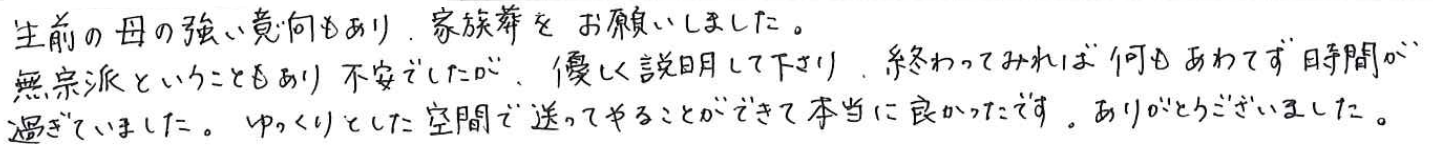 生前の母の強い意向もあり、家族葬をお願いしました。
無宗派ということもあり不安でしたが、優しく説明して下さり、終わってみれば何もあわてず時間が
過ぎていました。ゆっくりとした空間で送ってやることができて本当に良かったです。ありがとうございました。